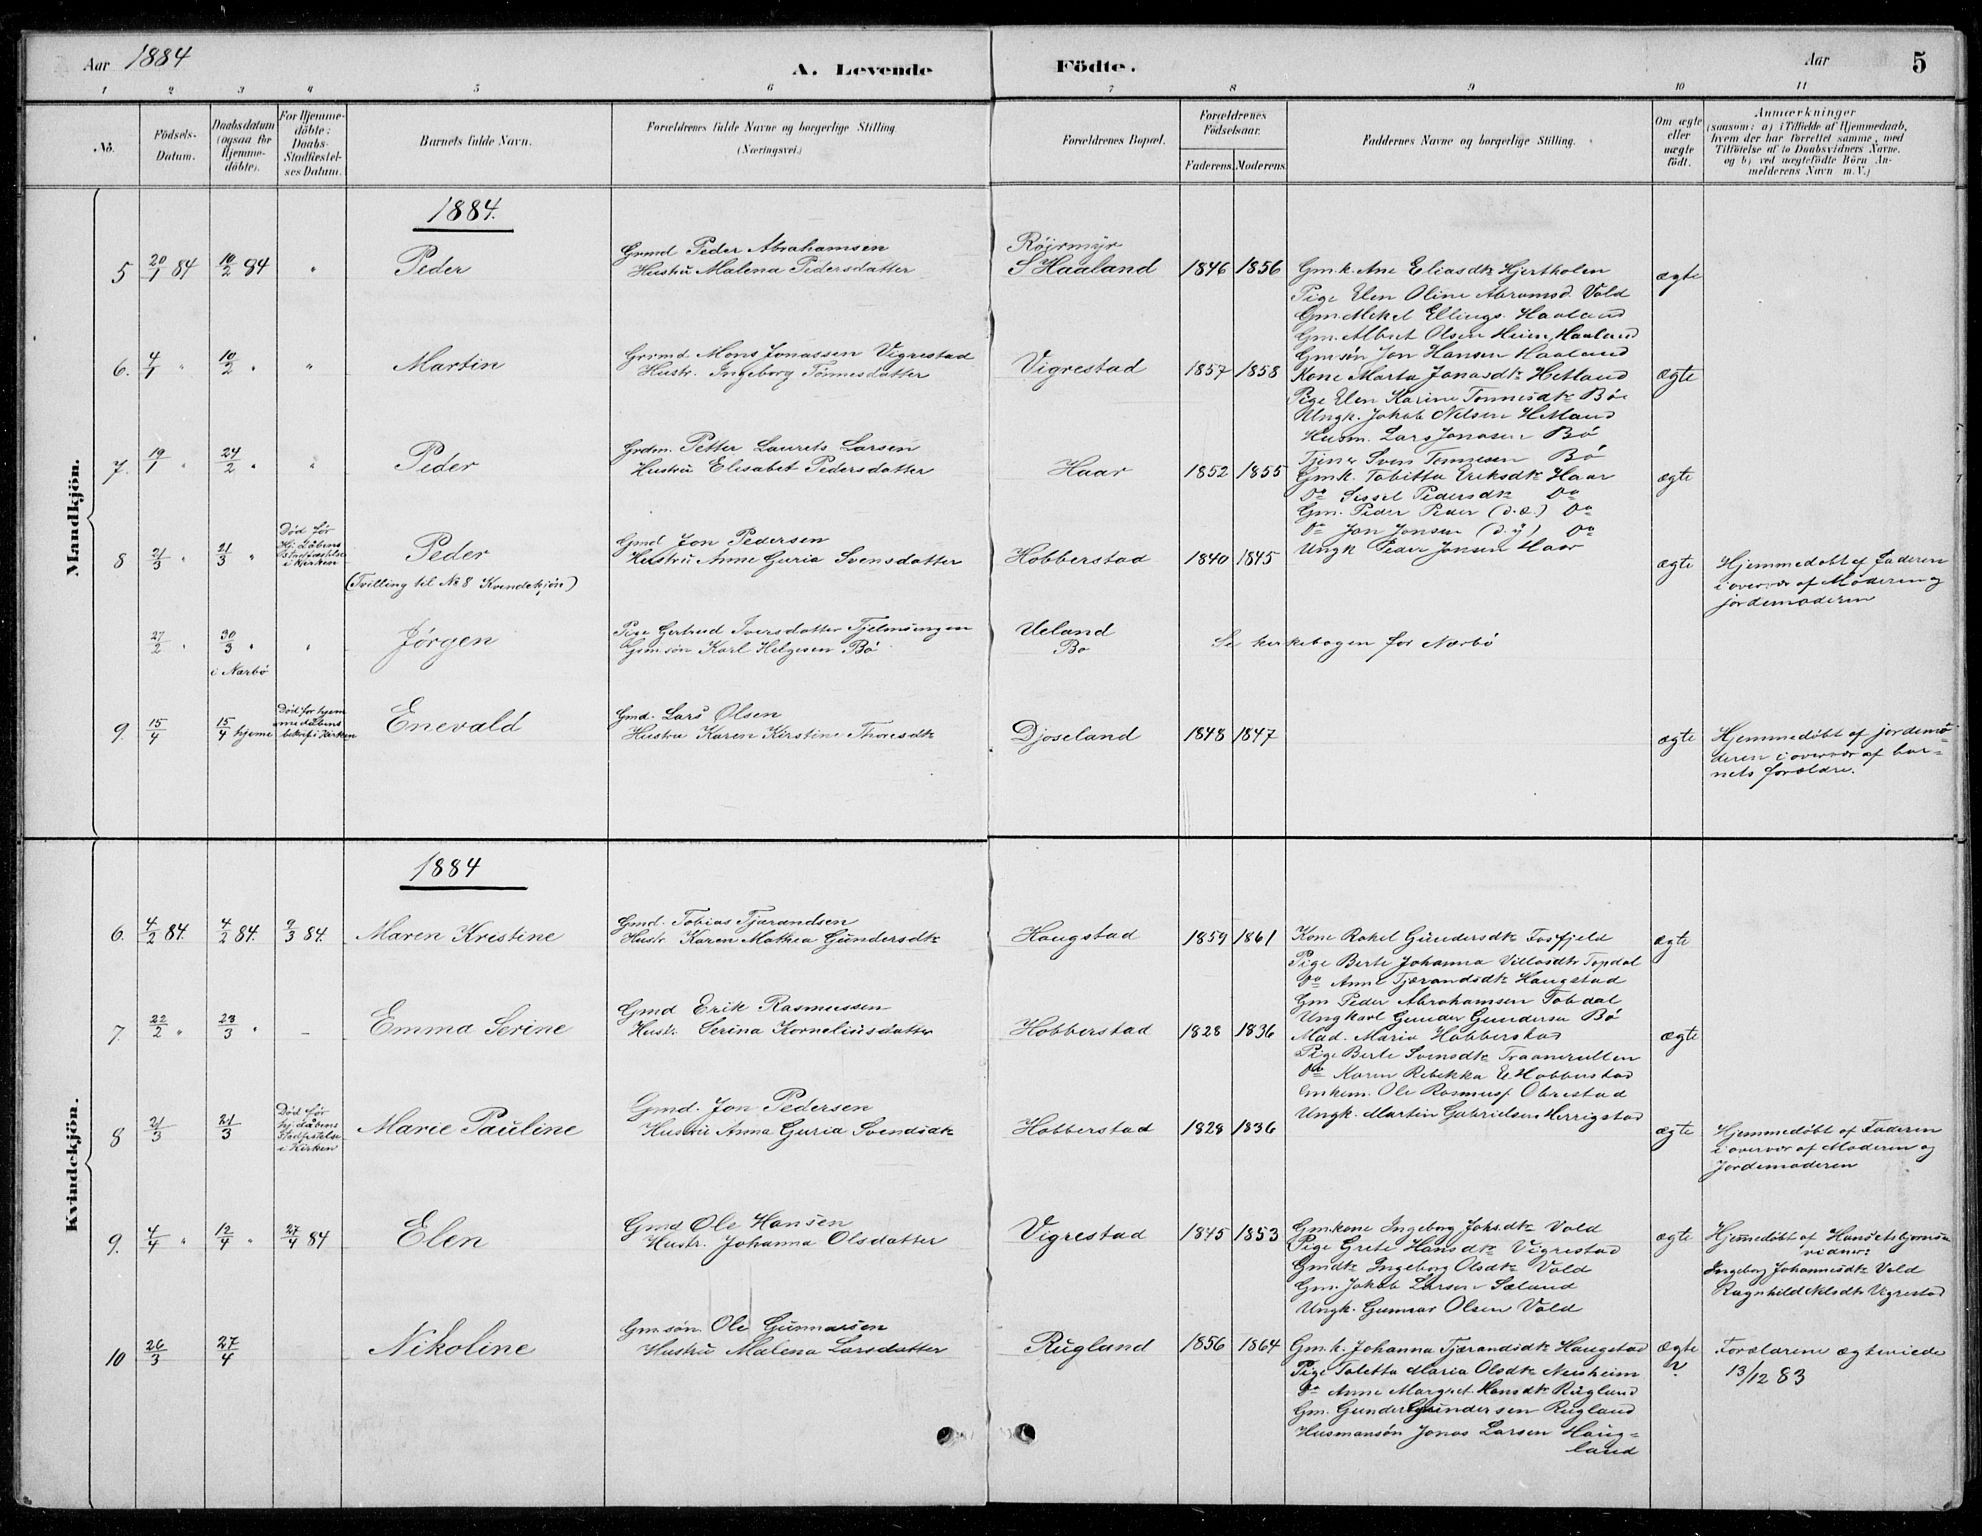 Aar 1884
A. Levende
Födte.
Aar
5
1 2 3 4 5 6 7 8 9 10 11
No.
Födsels-
Datum.
Daabsdatum
(ogsaa for
Hjemme-
döbte).
For Hjemme-
döbte:
Daabs-
Stadfæstel-
ses Datum.
Barnets fulde Navn.
Forældrenes fulde Navne og borgerlige Stilling.
(Næringsvei.)
Forældrenes Bopæl.
Forældrenes
Födselsaar.
Faderens. Moderens.
Faddernes Navne og borgerlige Stilling.
Om ægte
eller
uægte
födt.
Anmærkninger
(saasom: a) i Tilfælde af Hjemmedaab,
hvem der har forrettet samme, med
Tilföielse af to Daabsvidners Navne.
og b) ved uægtefödte Börn An-
melderens Navn m. V.)
Mandkjön.
1884.
5 20/1 84 10/2 84 " Peder
Grmd Peder Abrahamsen
Hustru Malena Pedersdatter
Röirmyr
S Haaland
1846 1856
Gm.k. Ane Eliasdtr Hjertholen
Pige Elen Oline Abramsd. Vold
Gm. Mikel Ellings. Haaland
Gm. Albret Olsen Haaland
Gmsøn Jon Hansen Haaland
ægte
6. 4/1 " 10/2 " " Martin
Grmd Mons Jonassen Vigrestad
Hustr. Ingeborg Tönnesdatter
Vigrestad
1857 1858
Kone Marta Jonasdtr Hetland
Pige Elen Karine Tönnesdtr Bøe
Ungk. Jakob Nilsen Hetland
Husm. Lars Jonasen Bö
Tjener Sven Tönnesen Bö
ægte
7. 19/1 " 24/2 " " Peder
Grdm. Petter Laurets Larsen
Hustru Elisabet Pedersdatter
Haar
1852 1855
Gm.k. Tobitta Eriksdtr Haar
Do Sissel Pedersdtr Do
Gm. Peder Peder (d.æ.) Do
Do Jon Jonsen (d.y) Do
Ungk Peder Jonsen Haar
ægte
8 21/3 " 21/3 "
Død før
Hj. Dåbens
Stadfæstelse
i Kirken
Peder
(Tvilling til No 8 Kvindekjön)
Gmd Jon Pedersen
Hustru Anne Guria Svensdatter
Hobberstad
1840 1845
ægte
Hjemmedøbt af Faderen
i overvær af Moderen og
jordemoderen
27/2 " 30/3 " "
i Nærbö
Jørgen
Pige Gertrud Iversdatter Tjelmsengen
Gmsøn Karl Helgesen Bö
Ueland
Bö
Se kirkebogen for Nærbö
9. 15/4 15/4 hjeme
Død før hjem
medåbens
bekr. i Kirken
Enevald
Gmd. Lars Olsen
Hustru Karen Kirstine Thoresdtr
Djoseland
1848 1847
ægte
Hjemmedøbt af jordemo-
deren i overvær af bar-
nets forældre.
Kvindekjön.
1884
6. 4/2 84. 4/2 84. 9/3 84. Maren Kristine
Gmd. Tobias Tjærandsen
Hustr Karen Mathea Gundersdtr
Haugstad
1859 1861
Kone Rakel Gundersdtr Fosfjeld
Pige Berte Johanna Villasdtr Topdal
Do Anne Tjærandsdtr Haugstad
Gm Peder Abrahamsen Tobdal
Ungkarl Gunder Gundersen Bö
ægte
7 22/2 " 23/3 " – Emma Serine
Gmd Erik Rasmussen
Hustr Serina Korneliusdatter
Hobberstad
1828 1836
Mad. Maria Hobberstad
Pige Berte Svensdtr Traanerullen
Do Karen Rebekka E Hobberstad
Enkem. Ole Rasmuss Obrestad
Ungk. Martin Gabrielsen Herrigstad
ægte
8 21/3 21/3
Død før
hj. dåbens
Stadfæstelse
i Kirken
Marie Pauline
Gmd. Jon Pedersen
Hustru Anna Guria Svendsdtr
Hobberstad
1828 1836
ægte
Hjemmedøbt af Faderen
i overvær af Moderen og
Jordemoderen
9. 4/4 " 12/4 " 27/4 84 Elen
Gmd Ole Hansen
Hustr. Johanna Olsdatter
Vigrestad
1845 1853
Gm.kone Ingeborg Johsdtr Vold
Pige Grete Hansdtr Vigrestad
Gmdtr Ingeborg Olsdtr Vold
Gm. Jakob Larsen Sæland
Ungk. Gunnar Olsen Vold
ægte
Hjemmedøbt af
vidner:
Ingeborg Johannesdtr Vold
Ragnhild Nilsdtr Vigrestad
10 26/3 27/4 Nikoline
Gmsøn. Ole Gunnarsen
Hustru Malena Larsdatter
Rugland
1856 1864
Gm.k. Johanna Tjærandsdtr Haugstad
Pige Taletta Maria Olsdtr Nesheim
Do Anne Margret Hansdtr Rugland
Gm. Gunder Gundersen Rugland
Husmansøn Jonas Larsen Haug-
land
ægte
?
Forældrene ægteviede
13/12 83